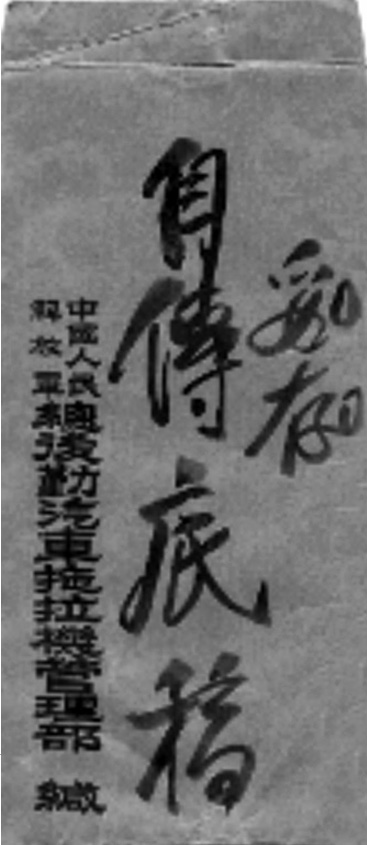 妥存
自傳底稿
中國人民
解放軍
總後勤汽車拖拉機管理部 緘